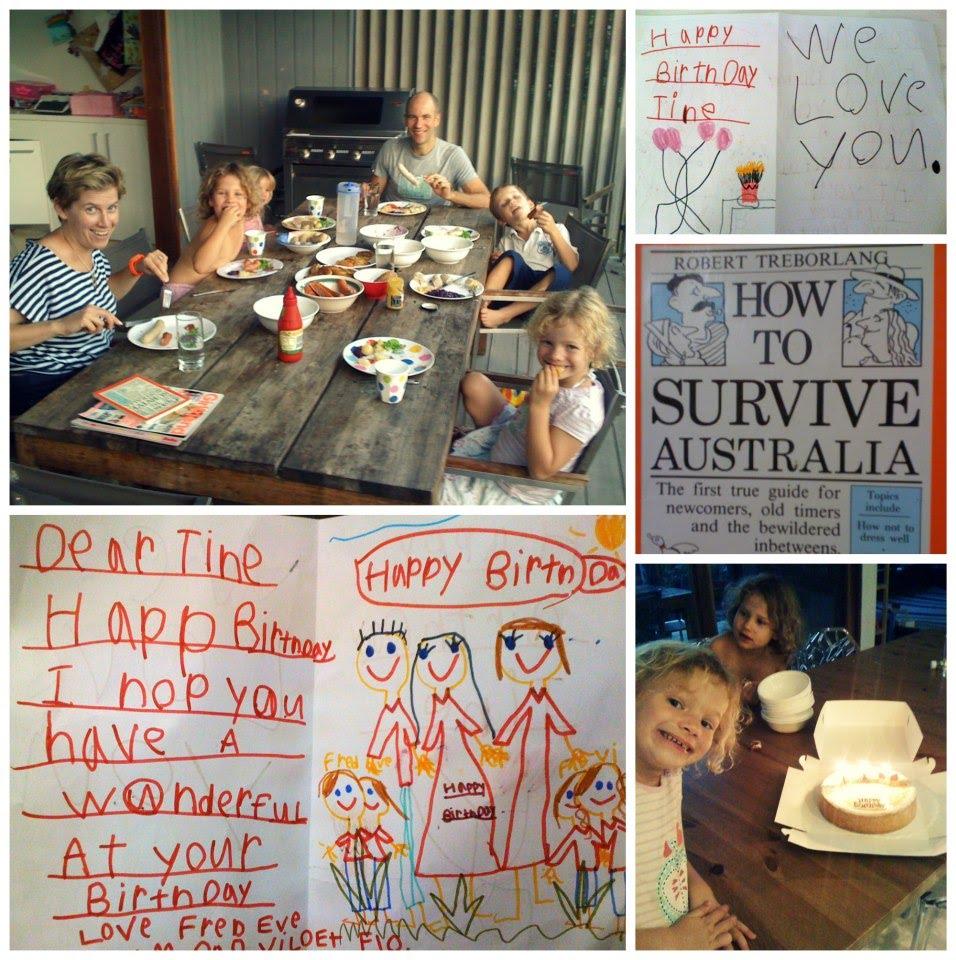 Happy
BirthDay
Tine
We
Love
you.
ROBERT TREBORLANG
HOW
TO
SURVIVE
AUSTRALIA
The first true guide for
newcomers, old timers
and the bewildered
inbetweens.
Topics
include
How not to
dress well
Dear Tine
Happ Birthday
I hop you
have A
wonderful
At your
Birthday
Love Fred Eve
Happy Birth Da
Fred Eve
Vi
Happy
Birthday
Happy
Birthday